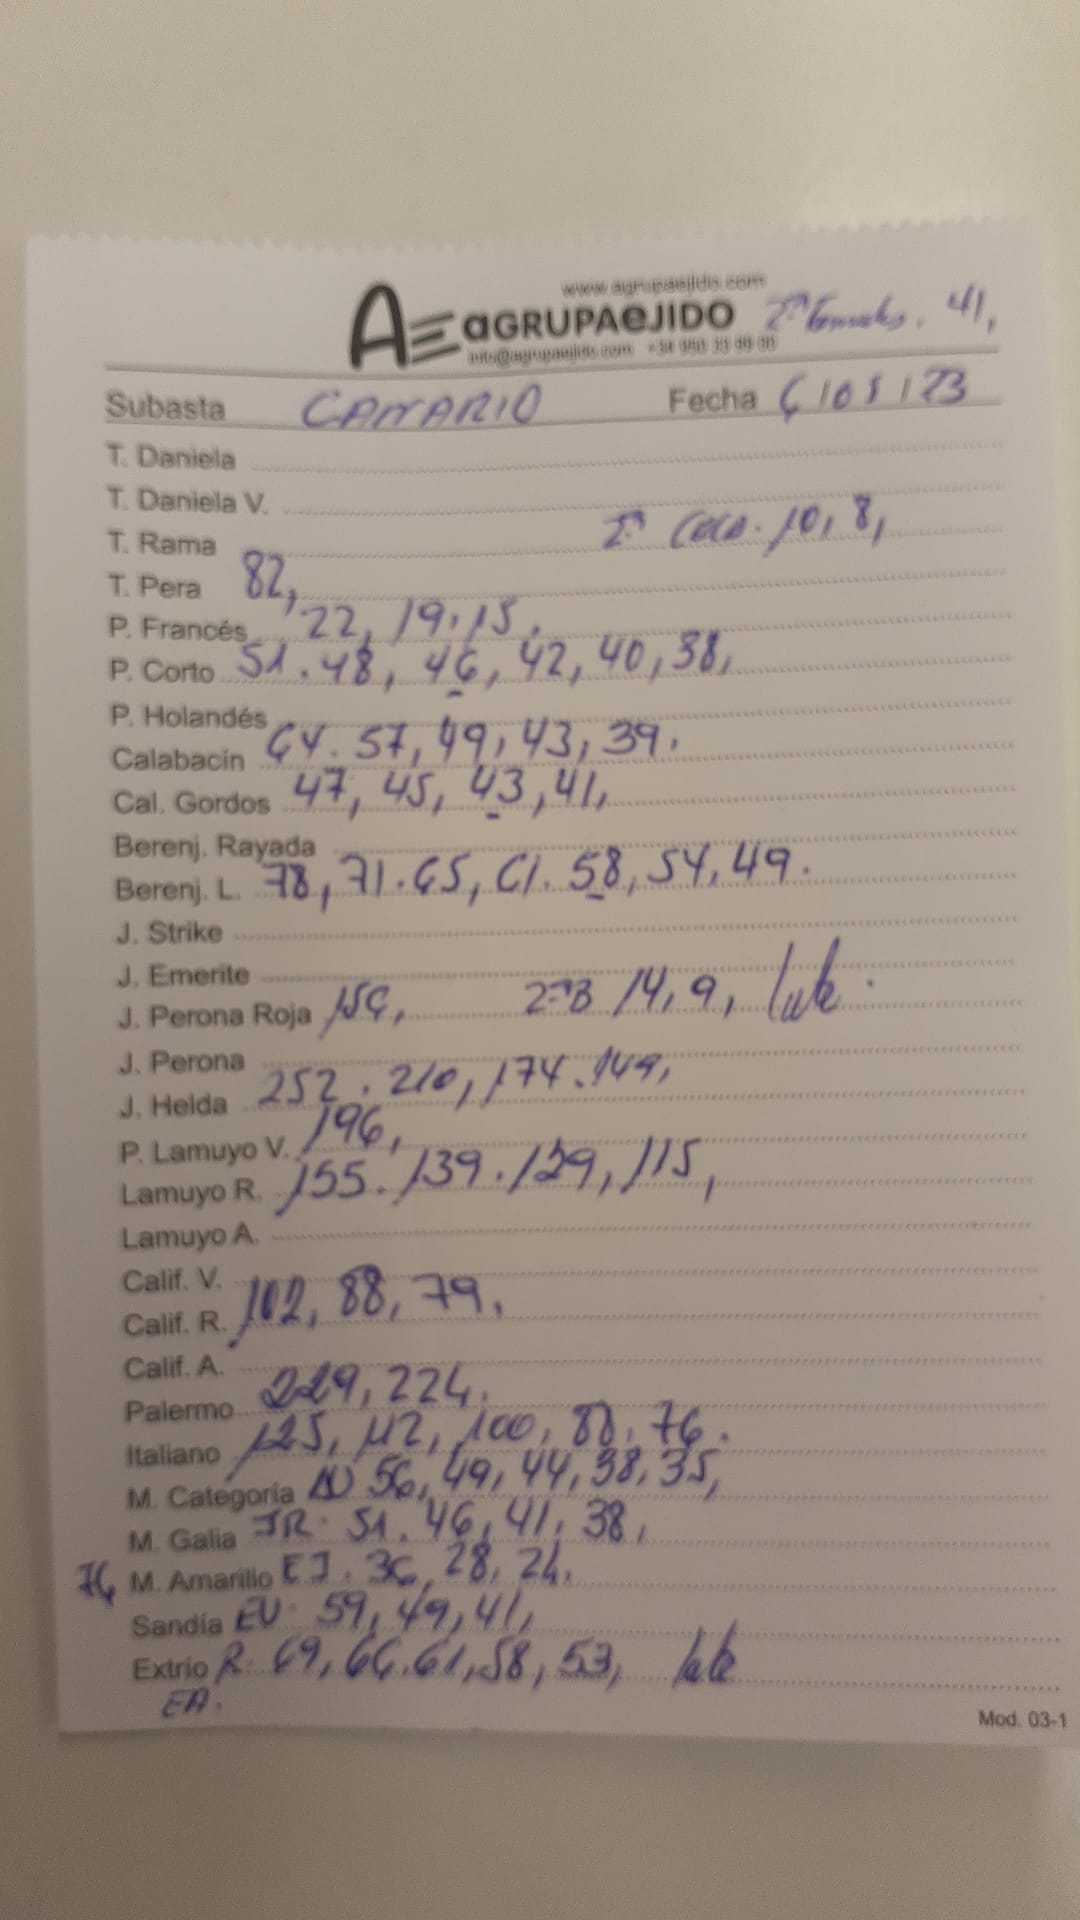 www.agrupaejido.com
AE aGRUPAeJIDO 2ª 41,
info@agrupaejido.com +34 950 23 99 30
Subasta CANARIO Fecha 6/05/23
T. Daniela
T. Daniela V.
T. Rama 2ª Coco. 10, 8,
T. Pera 82,
P. Francés 22, 19. 15.
P. Corto 51. 48, 46, 42, 40, 38,
P. Holandés
Calabacín 64. 57, 49, 43, 39.
Cal. Gordos 47, 45, 43, 41,
Berenj. Rayada
Berenj. L. 78, 71. 65, 61. 58, 54, 49.
J. Strike
J. Emerite
J. Perona Roja 156, 2ªB 14, 9,
J. Perona
J. Helda 252. 210, 174. 149,
P. Lamuyo V. 196,
Lamuyo R. 155. 139. 129, 115,
Lamuyo A.
Calif. V.
Calif. R. 102, 88, 79,
Calif. A.
Palermo 229, 224.
Italiano 125, 112, 100, 88, 76.
M. Categoría N 56, 49, 44, 38, 35,
M. Galia JR. 51. 46, 41, 38,
76 M. Amarillo EJ. 36, 28, 24.
Sandía EU. 59, 49, 41,
Extrio R. 69, 66. 61, 58, 53,
EA.
Mod. 03-1